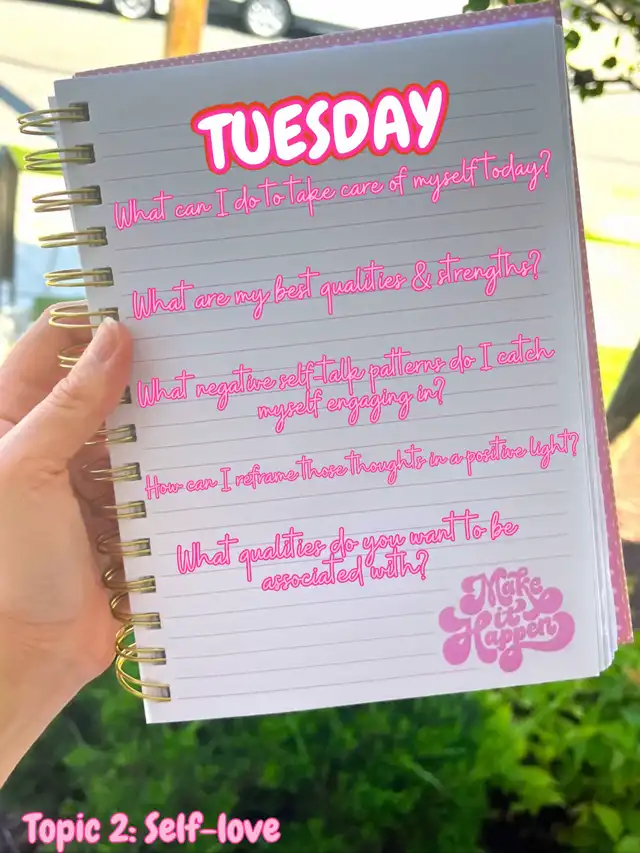 TUESDAY
What can I do to take care of myself today?
What are my best qualities & strengths?
What negative self-talk patterns do I catch
myself engaging in?
How can I reframe those thoughts in a positive light?
What qualities do you want to be
associated with?
Make
it
Happen
Topic 2: Self-love